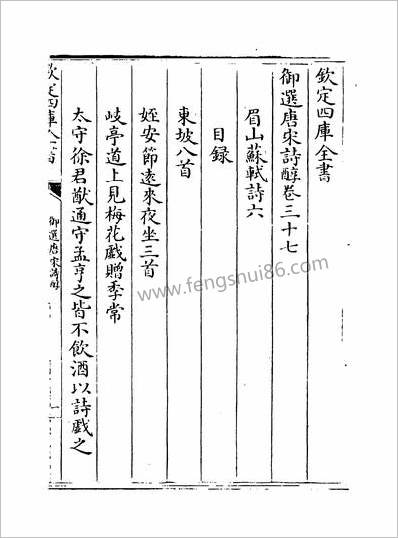 欽定四庫全書
御選唐宋詩醇卷三十七
眉山蘇軾詩六
目録
東坡八首
姪安節逺來夜坐三首
岐亭道上見梅花戲贈季常
太守徐君猷通守孟亨之皆不飲酒以詩戲之
欽定四庫全書
御選唐宋詩醇
www.fengshui86.com